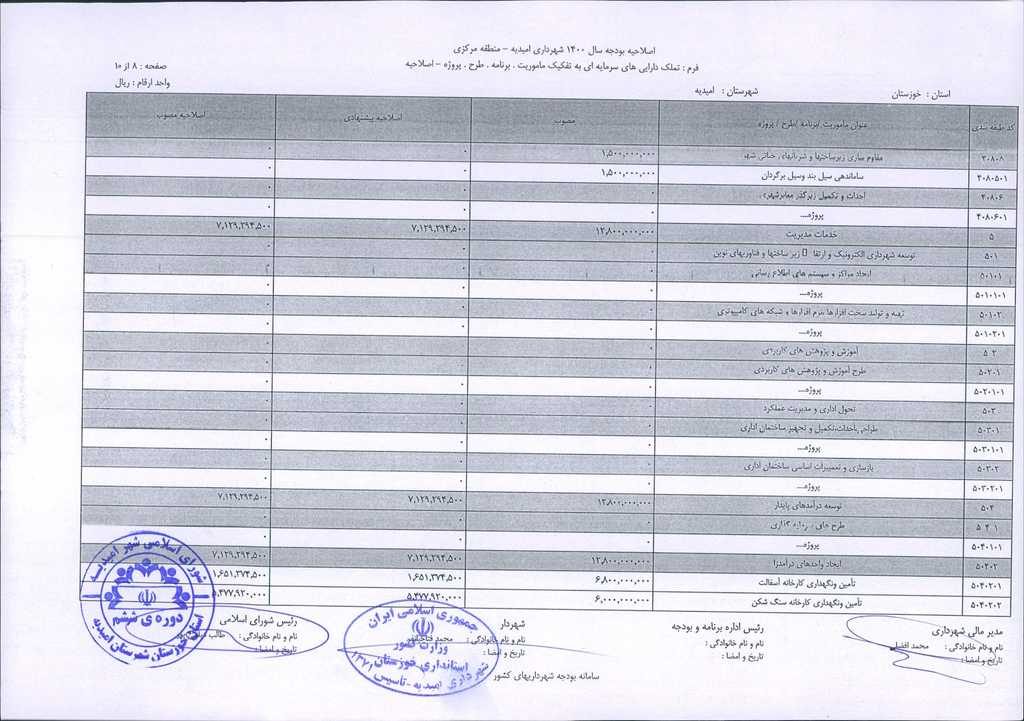 اصلاحیه بودجه سال ۱۴۰۰ شهرداری امیدیه - منطقه مرکزی
فرم : تملک دارایی های سرمایه ای به تفکیک ماموریت . برنامه . طرح . پروژه - اصلاحیه
صفحه : ۸ از ۱۰
واحد ارقام : ریال
استان : خوزستان شهرستان : امیدیه
کد طبقه بندی عنوان ماموریت /برنامه /طرح / پروژه مصوب اصلاحیه پیشنهادی اصلاحیه مصوب
۴۰۸۰۸ مقاوم سازی زیرساختها و شریانهای حیاتی شهر ۱,۵۰۰,۰۰۰,۰۰۰ ۰ ۰
۴۰۸۰۵۰۱ ساماندهی سیل بند وسیل برگردان ۱,۵۰۰,۰۰۰,۰۰۰ ۰ ۰
۴۰۸۰۶ احداث و تکمیل زیرگذر معابرشهری ۰ ۰ ۰
۴۰۸۰۶۰۱ پروژه... ۰ ۰ ۰
۵ خدمات مدیریت ۱۲,۸۰۰,۰۰۰,۰۰۰ ۷,۱۲۹,۲۹۴,۵۰۰ ۷,۱۲۹,۲۹۴,۵۰۰
۵۰۱ توسعه شهرداری الکترونیک و ارتقا زیر ساختها و فناوریهای نوین ۰ ۰ ۰
۵۰۱۰۱ ایجاد مراکز و سیستم های اطلاع رسانی ۰ ۰ ۰
۵۰۱۰۱۰۱ پروژه... ۰ ۰ ۰
۵۰۱۰۲ تهیه و تولید سخت افزارها نرم افزارها و شبکه های کامپیوتری ۰ ۰ ۰
۵۰۱۰۲۰۱ پروژه... ۰ ۰ ۰
۵۰۲ آموزش و پژوهش های کاربردی ۰ ۰ ۰
۵۰۲۰۱ طرح آموزش و پژوهش های کاربردی ۰ ۰ ۰
۵۰۲۰۱۰۱ پروژه... ۰ ۰ ۰
۵۰۳ تحول اداری و مدیریت عملکرد ۰ ۰ ۰
۵۰۳۰۱ طراحی،احداث،تکمیل و تجهیز ساختمان اداری ۰ ۰ ۰
۵۰۳۰۱۰۱ پروژه... ۰ ۰ ۰
۵۰۳۰۲ بازسازی و تعمیرات اساسی ساختمان اداری ۰ ۰ ۰
۵۰۳۰۲۰۱ پروژه... ۰ ۰ ۰
۵۰۴ توسعه درآمدهای پایدار ۱۲,۸۰۰,۰۰۰,۰۰۰ ۷,۱۲۹,۲۹۴,۵۰۰ ۷,۱۲۹,۲۹۴,۵۰۰
۵۰۴۰۱ طرح های سرمایه گذاری ۰ ۰ ۰
۵۰۴۰۱۰۱ پروژه... ۰ ۰ ۰
۵۰۴۰۲ ایجاد واحدهای درآمدزا ۱۲,۸۰۰,۰۰۰,۰۰۰ ۷,۱۲۹,۲۹۴,۵۰۰ ۷,۱۲۹,۲۹۴,۵۰۰
۵۰۴۰۲۰۱ تأمین ونگهداری کارخانه آسفالت ۶,۸۰۰,۰۰۰,۰۰۰ ۱,۶۵۱,۳۷۴,۵۰۰ ۱,۶۵۱,۳۷۴,۵۰۰
۵۰۴۰۲۰۲ تأمین ونگهداری کارخانه سنگ شکن ۶,۰۰۰,۰۰۰,۰۰۰ ۵,۴۷۷,۹۲۰,۰۰۰ ۵,۴۷۷,۹۲۰,۰۰۰
مدیر مالی شهرداری رئیس اداره برنامه و بودجه شهردار رئیس شورای اسلامی
نام و نام خانوادگی : محمد افضلی نام و نام خانوادگی : نام و نام خانوادگی : محمد نام و نام خانوادگی : طالب
تاریخ و امضا : تاریخ و امضا : تاریخ و امضا : تاریخ و امضا :
سامانه بودجه شهرداریهای کشور
جمهوری اسلامی ایران
وزارت کشور
استانداری خوزستان
شهرداری امیدیه - تاسیس ۱۳۷۱
شورای اسلامی شهر امیدیه
دوره ی ششم
استان خوزستان شهرستان امیدیه